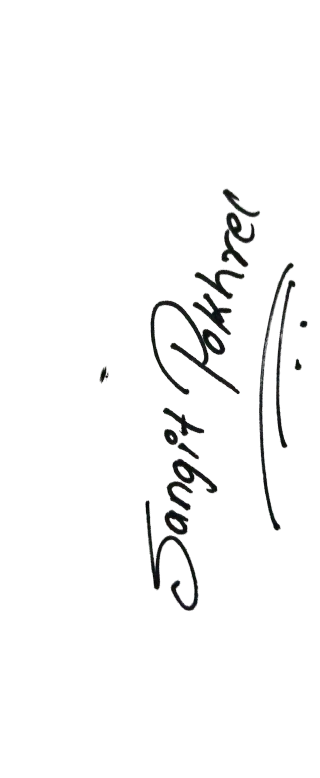 Sangit Pokhrel